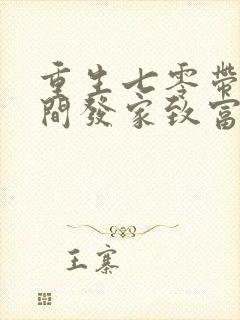 重生七零帶
間發家致富
王寨